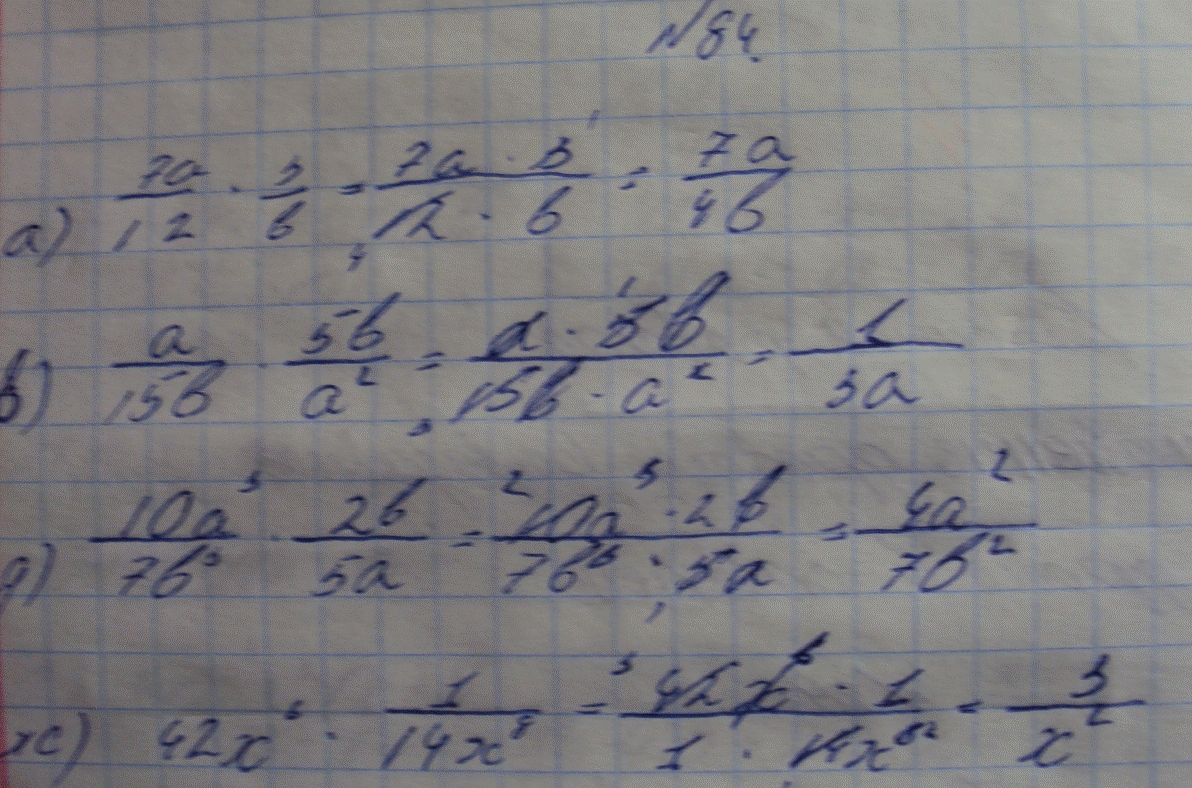 №84.
а) 7a/12 · 3/b = 7a · 3/12 · b = 7a/4b
в) a/15b · 5b/a² = a · 5b/15b · a² = 1/3a
д) 10a³/7b³ · 2b/5a = 10a³ · 2b/7b³ · 5a = 4a²/7b²
ж) 42x · 1/14x = 42x · 1/1 · 14x = 3/x²